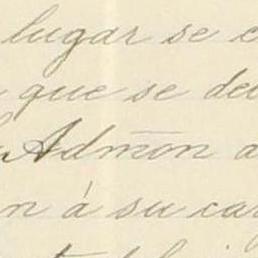 lugar se c
que se de
Admōn a
n á su car